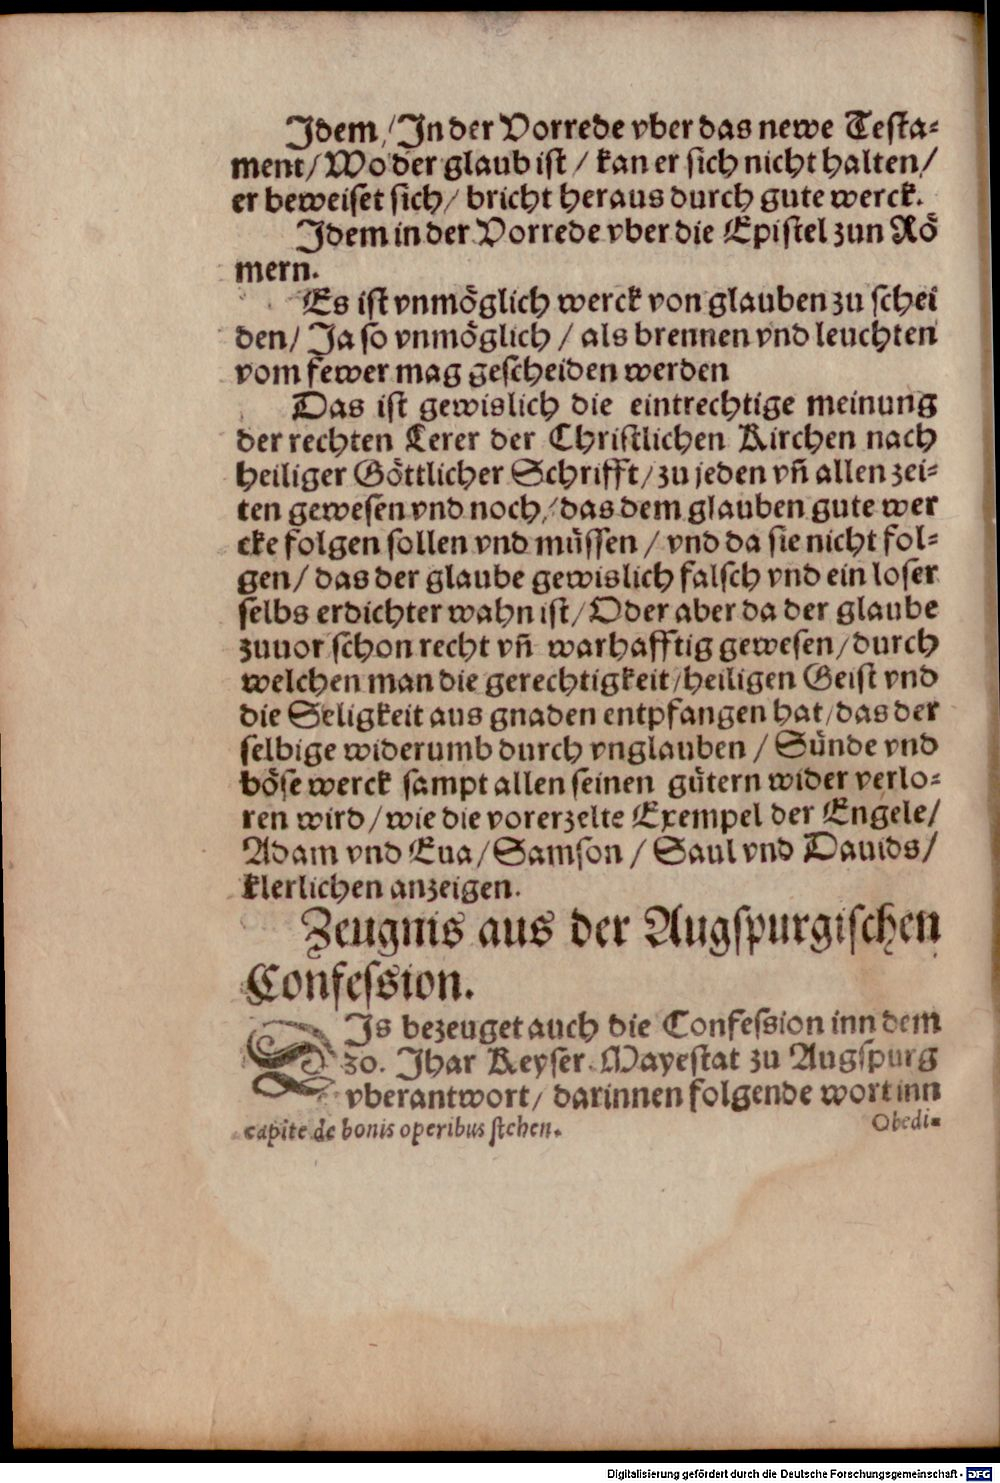 Idem / In der Vorrede vber das newe Testa-
ment / Wo der glaub ist / kan er sich nicht halten /
er beweiset sich / bricht heraus durch gute werck.
Idem in der Vorrede vber die Epistel zun Rö
mern.
Es ist vnmöglich werck von glauben zu schei
den / Ja so vnmöglich / als brennen vnd leuchten
vom fewer mag gescheiden werden
Das ist gewislich die eintrechtige meinung
der rechten Lerer der Christlichen Kirchen nach
heiliger Göttlicher Schrifft / zu jeden vñ allen zei-
ten gewesen vnd noch / das dem glauben gute wer
cke folgen sollen vnd müssen / vnd da sie nicht fol-
gen / das der glaube gewislich falsch vnd ein loser
selbs erdichter wahn ist / Oder aber da der glaube
zuuor schon recht vñ warhafftig gewesen / durch
welchen man die gerechtigkeit / heiligen Geist vnd
die Seligkeit aus gnaden entpfangen hat / das der
selbige widerumb durch vnglauben / Sünde vnd
böse werck sampt allen seinen gütern wider verlo-
ren wird / wie die vorerzelte Exempel der Engele /
Adam vnd Eua / Samson / Saul vnd Dauids /
klerlichen anzeigen.
Zeugnis aus der Augspurgischen
Confession.
DIs bezeuget auch die Confession inn dem
30. Jhar Keyser. Mayestat zu Augspurg
vberantwort / darinnen folgende wort inn
capite de bonis operibus stehen.
Obedi-
Digitalisierung gefördert durch die Deutsche Forschungsgemeinschaft - DFG